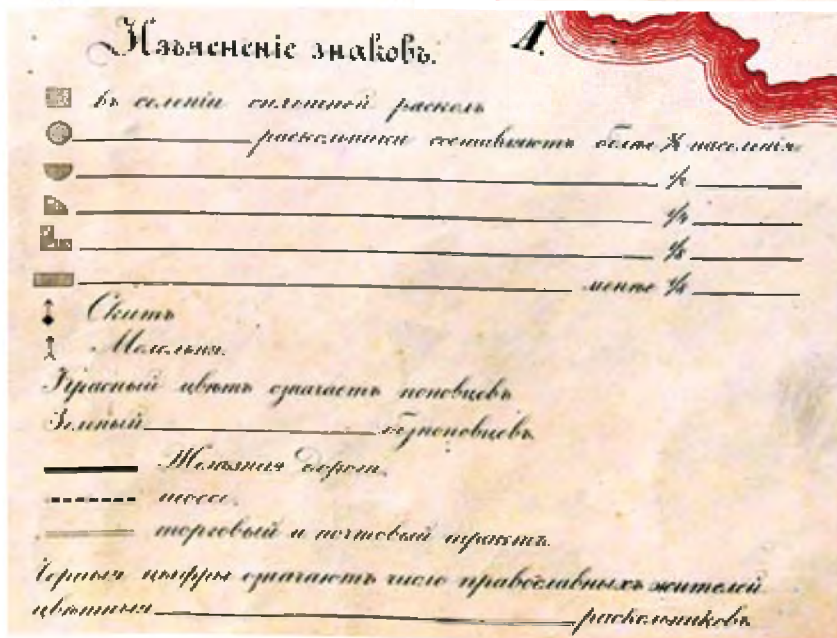 Изъясненіе знаковъ.
А.
въ селеніи сплошной расколъ
раскольники составляютъ болѣе населенія
1/2
1/4
менѣе
Скитъ
Молельня.
Красный цвѣтъ означаетъ поповцевъ
Зеленый безпоповцевъ
Желѣзная дорога.
шоссе.
торговый и почтовый трактъ.
Черныя цыфры означаютъ число православныхъ жителей
цвѣтныя раскольниковъ